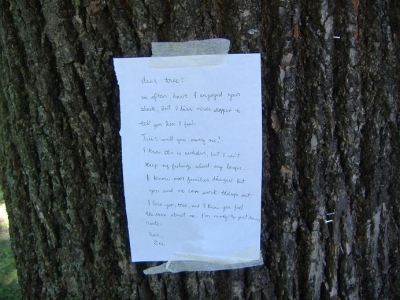 dear tree:
so often have I enjoyed your
shade, but I have never stopped to
tell you how I feel.
Tree: will you marry me?
I know this is sudden, but I can't
keep my feelings silent any longer.
I know most families disagree but
you and me can work things out.
I love you, tree, and I know you feel
the same about me. I'm ready to put down
roots.
love,